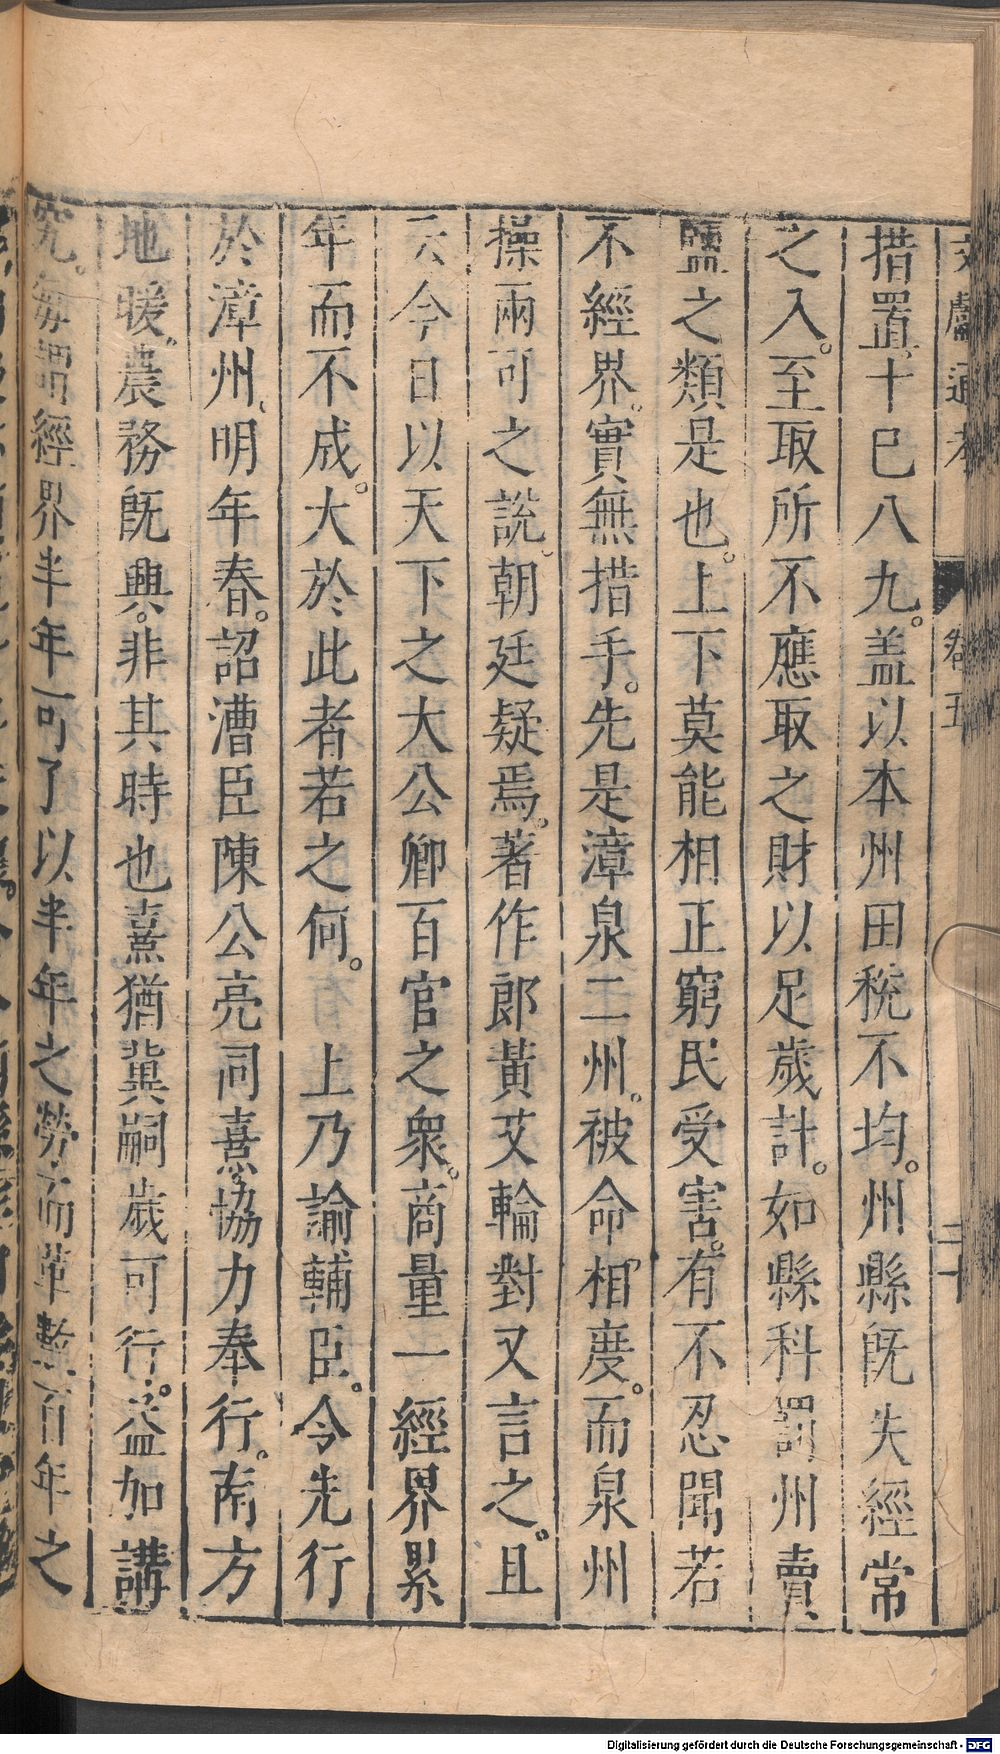 文獻通考 卷五 二十
措置十巳八九。盖以本州田稅不均。州縣旣失經常
之入。至取所不應取之財以足歲計。如縣科罰州賣
鹽之類是也。上下莫能相正窮民受害。有不忍聞若
不經界。實無措手。先是漳泉二州。被命相度。而泉州
操兩可之說。朝廷疑焉。著作郎黃艾輪對又言之。且
云今日以天下之大公卿百官之衆。商量一經界累
年而不成。大於此者若之何。上乃諭輔臣。令先行
於漳州。明年春。詔漕臣陳公亮同熹協力奉行。南方
地暖。農務旣興。非其時也熹猶冀嗣歲可行。益加講
究。每謂經界半年可了以半年之勞而革數百年之
Digitalisierung gefördert durch die Deutsche Forschungsgemeinschaft - DFG